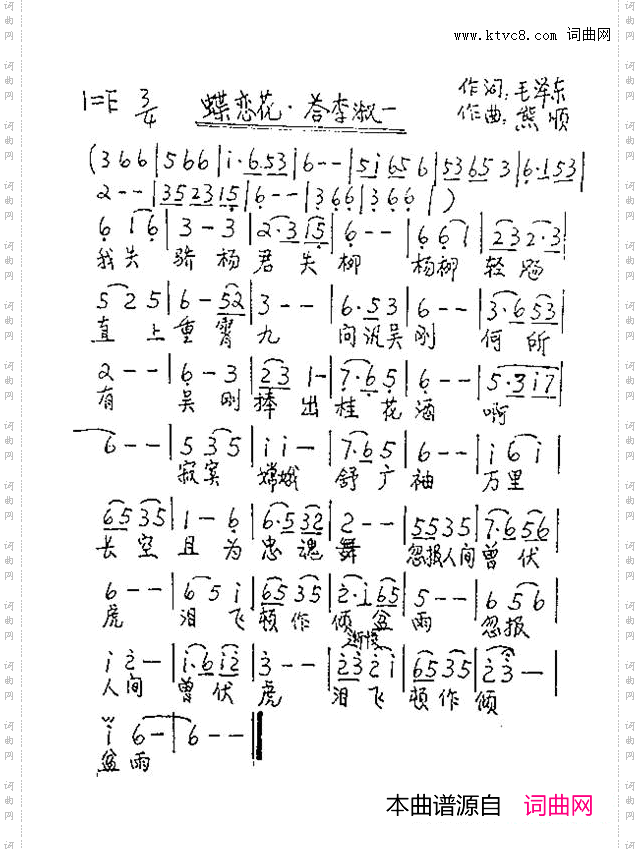 www.ktvc8.com 词曲网
1=E 3/4 蝶恋花·答李淑一
作词：毛泽东
作曲：熊顺
(3 6 6 | 5 6 6 | i·6.53 | 6 - - | 5i 65 6 | 53 65 3 | 6·1 53 |
2 - - | 35 23 15 | 6 - - | 3 6 6 | 3 6 6 | )
6 1 6 | 3 - 3 | 2·3 15 | 6 - - | 6 6 1 | 23 2·3 |
我失 骄杨 君失 柳 杨柳 轻飏
5 2 5 | 6 - 52 | 3 - - | 6·5 3 | 6 - - | 3·6 53 |
直上 重霄 九 问讯吴 刚 何所
2 - - | 6 - 3 | 23 1- | 7·6 5 | 6 - - | 5·3 i7 |
有 吴刚 捧出 桂花 酒 啊
6 - - | 5 3 5 | i i - | 7·6 5 | 6 - - | i 6 i |
寂寞 嫦娥 舒广 袖 万里
65 35 | 1 - 6 | 6·5 32 | 2 - - | 55 35 | 7·6 56 |
长空 且为 忠魂 舞 忽报人间 曾伏
6 - - | 6 5 i | 65 35 | 2·i 65 | 5 - - | 6 5 6 |
虎 泪飞 顿作 倾盆 雨 忽报
渐慢
i 2 - | i·6 i2 | 3 - - | 23 2 i | 65 35 | 2 3 - |
人间 曾伏 虎 泪飞 顿作 倾
i 6 - | 6 - - ‖
盆雨
本曲谱源自 词曲网
词曲网